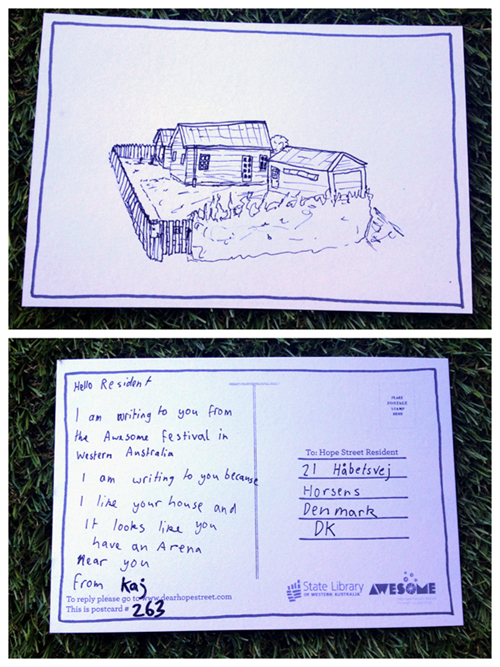 Hello Resident
I am writing to you from
the Awesome festival in
Western Australia
I am writing to you because
I like your house and
it looks like you
have an Arena
Near you
From Kaj
To reply please go to www.dearhopestreet.com
This is postcard # 263
PLACE
POSTAGE
STAMP
HERE
To: Hope Street Resident
21 Håbetsvej
Horsens
Denmark
DK
State Library
OF WESTERN AUSTRALIA
AWESOME